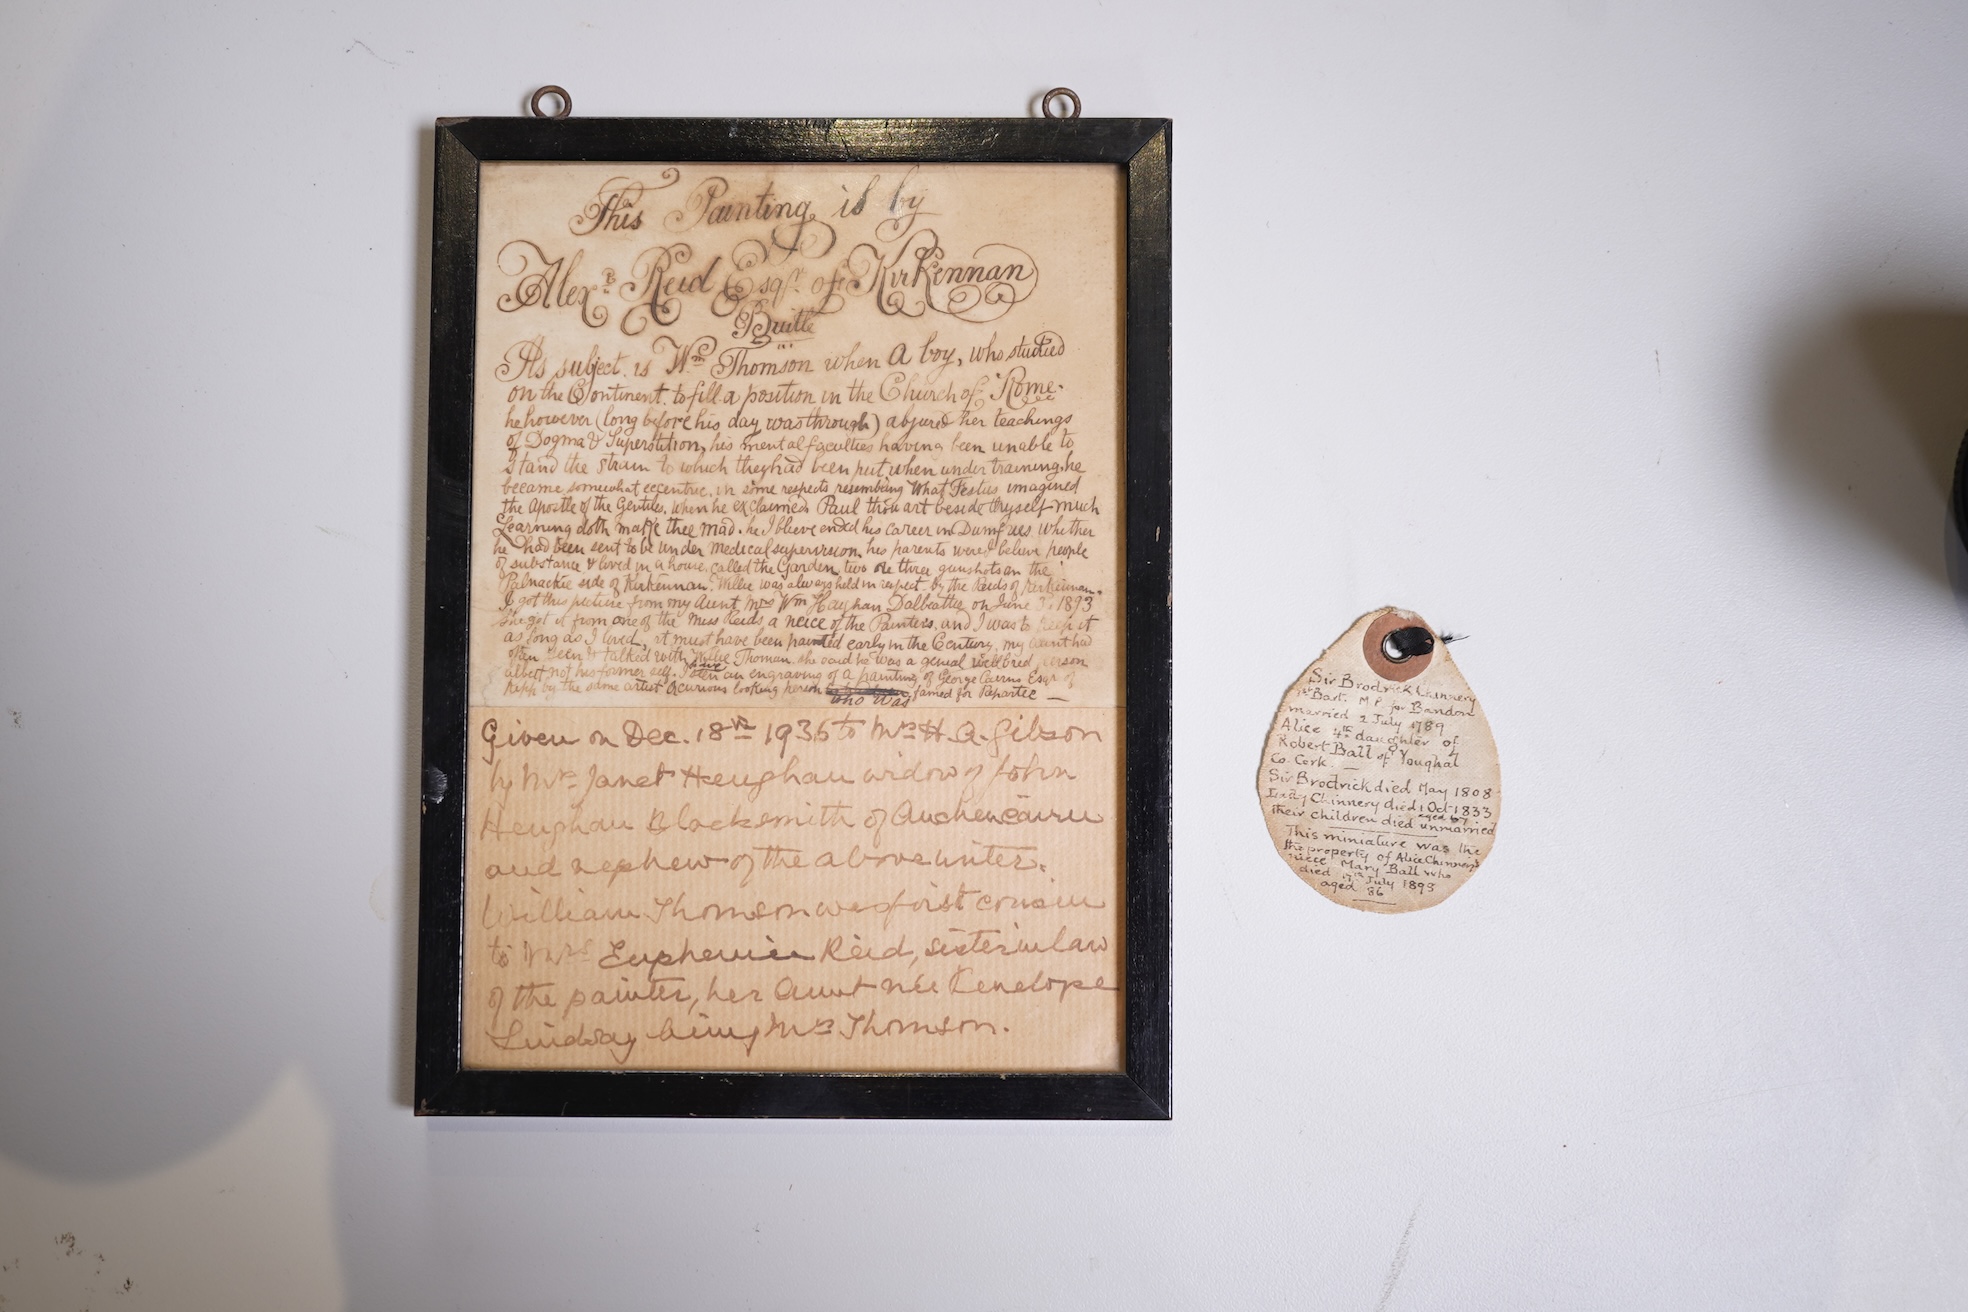 This Painting is by
Alexr. Reid Esqr. of Kirkennan
Buittle
Its subject is Wm Thomson when a boy, who studied
on the Continent to fill a position in the Church of Rome.
he however (long before his day was through) abjured her teachings
of Dogma & Superstition, his mental faculties having been unable to
stand the strain to which they had been put when under training, he
became somewhat eccentric, in some respects resembling what Festus imagined
the Apostle of the Gentiles, when he exclaimed Paul thou art beside thyself much
Learning doth make thee mad. he I blieve ended his career in Dumfries whether
he had been sent to be under medical supervision, his parents were I believe people
of substance & lived in a house called the Garden two or three gunshots on the
Palnackie side of Kirkennan. Willie was always held in respect by the Reids of Kirkennan.
I got this picture from my Aunt Mrs Wm Hayghan Dalbeattie on June 3d 1893
she got it from one of the Miss Reids a neice of the Painters, and I was to keep it
as long as I lived, it must have been painted early in the Century, my Aunt had
often seen & talked with Willie Thoman. she said he was a genial wellbred person
albeit not his former self. I have seen an engraving of a painting of George Cairns Esqr of
Kipp by the same artist a curious looking person who was famed for Repartee —
Given on Dec. 18th 1936 to Mrs H. A. Gibson
by Mrs Janet Heughan widow of John
Heughan Blacksmith of Auchencairn
and nephew of the above writer.
William Thomson was first cousin
to Mrs Euphemia Reid, sister in law
of the painter, her Aunt née Penelope
Lindsay being Mrs Thomson.
Sir Brodrick Chinnery
1st Bart. M.P. for Bandon
married 2 July 1789
Alice 4th daughter of
Robert Ball of Youghal
Co. Cork. —
Sir Brodrick died May 1808
Lady Chinnery died 1 Oct 1833
aged 67
their children died unmarried
This miniature was the
the property of Alice Chinnery's
niece Mary Ball who
died 17th July 1893
aged 86